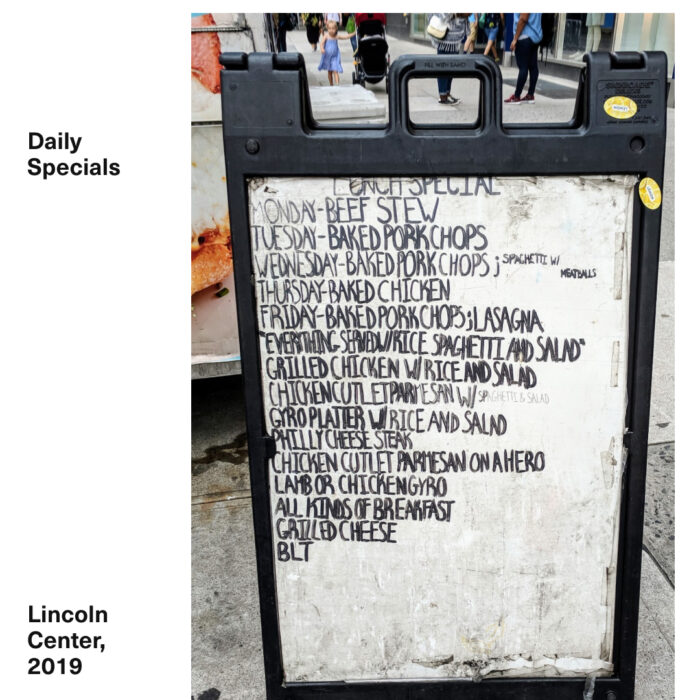 Daily
Specials
FILL WITH SAND
LUNCH SPECIAL
MONDAY-BEEF STEW
TUESDAY-BAKED PORK CHOPS
WEDNESDAY-BAKED PORK CHOPS; SPAGHETTI W/
MEATBALLS
THURSDAY-BAKED CHICKEN
FRIDAY-BAKED PORK CHOPS; LASAGNA
"EVERYTHING SERVED W/ RICE SPAGHETTI AND SALAD"
GRILLED CHICKEN W/ RICE AND SALAD
CHICKEN CUTLET PARMESAN W/ SPAGHETTI & SALAD
GYRO PLATTER W/ RICE AND SALAD
PHILLY CHEESE STEAK
CHICKEN CUTLET PARMESAN ON A HERO
LAMB OR CHICKEN GYRO
ALL KINDS OF BREAKFAST
GRILLED CHEESE
BLT
Lincoln
Center,
2019